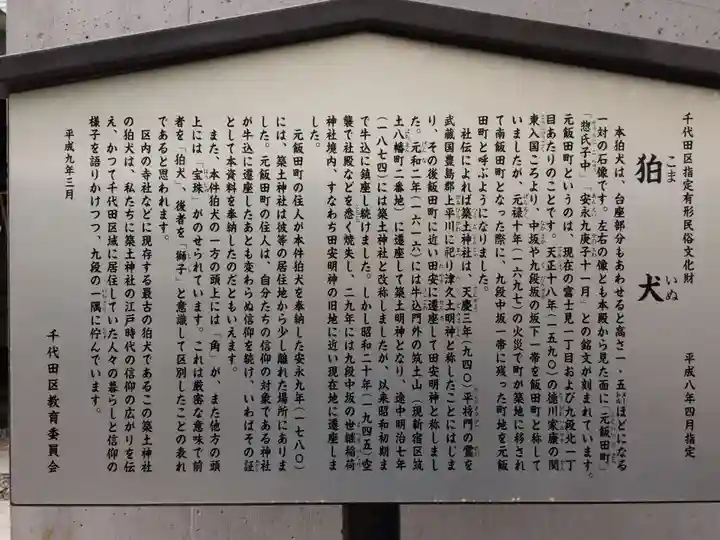 千代田区指定有形民俗文化財
平成八年四月指定
狛犬
こま いぬ
本狛犬は、台座部分もあわせると高さ一・五㍍ほどになる
一対の石像です。左右の像とも本殿から見た面に「元飯田町」
「惣氏子中」「安永九庚子十一月」との銘文が刻まれています。
元飯田町というのは、現在の富士見一丁目および九段北一丁
目あたりのことです。天正十八年(一五九〇)の徳川家康の関
東入国ころより、中坂や九段坂の坂下一帯を飯田町と称して
いましたが、元禄十年(一六九七)の火災で町が築地に移され
て南飯田町となった際に、九段中坂一帯に残った町地を元飯
田町と呼ぶようになりました。
社伝によれば築土神社は、天慶三年(九四〇)平将門の霊を
武蔵国豊島郡上平川に祀り津久土明神と称したことにはじま
り、その後飯田町に近い田安に遷座して田安明神と称しまし
た。元和二年(一六一六)には牛込門外の筑土山(現新宿区筑
土八幡町二番地)に遷座して築土明神となり、途中明治七年
(一八七四)には築土神社と改称しましたが、以来昭和初期ま
で牛込に鎮座し続けました。しかし昭和二十年(一九四五)空
襲で社殿などを悉く焼失し、二九年には九段中坂の世継稲荷
神社境内、すなわち田安明神の旧地に近い現在地に遷座しま
した。
元飯田町の住人が本件狛犬を奉納した安永九年(一七八〇)
には、築土神社は彼等の居住地から少し離れた場所にありま
した。元飯田町の住人は、自分たちの信仰の対象である神社
が牛込に遷座したあとも変わらぬ信仰を続け、いわばその証
として本資料を奉納したのだともいえます。
また、本件狛犬の一方の頭上には「角」が、また他方の頭
上には「宝珠」がのせられています。これは厳密な意味で前
者を「狛犬」、後者を「獅子」と意識して区別したことの表れ
であると思われます。
区内の寺社などに現存する最古の狛犬であるこの築土神社
の狛犬は、私たちに築土神社の江戸時代の信仰の広がりを伝
え、かつて千代田区域に居住していた人々の暮らしと信仰の
様子を語りかけつつ、九段の一隅に佇んでいます。
平成九年三月
千代田区教育委員会